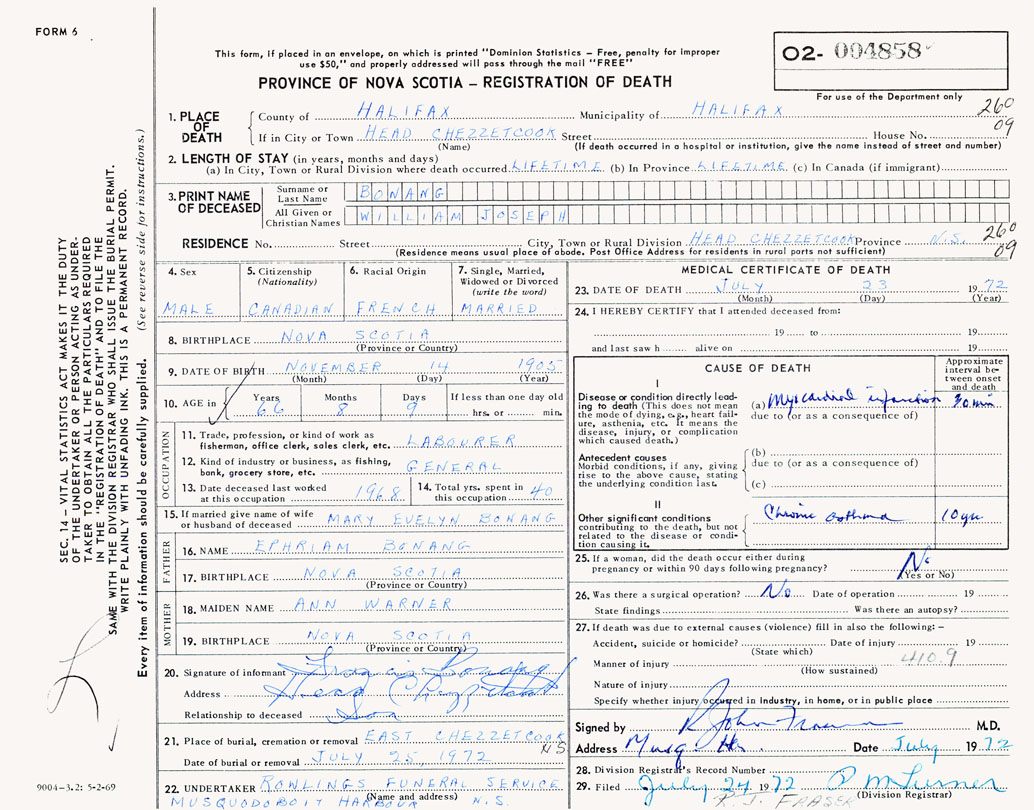 FORM 6
This form, if placed in an envelope, on which is printed "Dominion Statistics – Free, penalty for improper
use $50," and properly addressed will pass through the mail "FREE"
PROVINCE OF NOVA SCOTIA – REGISTRATION OF DEATH
O2- 004858
For use of the Department only
SEC. 14 – VITAL STATISTICS ACT MAKES IT THE DUTY
OF THE UNDERTAKER OR PERSON ACTING AS UNDER-
TAKER TO OBTAIN ALL THE PARTICULARS REQUIRED
IN THE "REGISTRATION OF DEATH" AND TO FILE THE
SAME WITH THE DIVISION REGISTRAR WHO SHALL ISSUE THE BURIAL PERMIT.
WRITE PLAINLY WITH UNFADING INK. THIS IS A PERMANENT RECORD.
Every item of information should be carefully supplied. (See reverse side for instructions.)
1. PLACE OF DEATH County of HALIFAX Municipality of HALIFAX 260
If in City or Town HEAD CHEZZETCOOK Street House No. 09
(Name) (If death occurred in a hospital or institution, give the name instead of street and number)
2. LENGTH OF STAY (in years, months and days)
(a) In City, Town or Rural Division where death occurred LIFETIME (b) In Province LIFETIME (c) In Canada (if immigrant)
3. PRINT NAME OF DECEASED Surname or Last Name BONANG
All Given or Christian Names WILLIAM JOSEPH
RESIDENCE No. Street City, Town or Rural Division HEAD CHEZZETCOOK Province N.S. 260
(Residence means usual place of abode. Post Office Address for residents in rural parts not sufficient) 09
4. Sex 5. Citizenship (Nationality) 6. Racial Origin 7. Single, Married, Widowed or Divorced (write the word)
MALE CANADIAN FRENCH MARRIED
8. BIRTHPLACE NOVA SCOTIA
(Province or Country)
9. DATE OF BIRTH NOVEMBER 14 1905
(Month) (Day) (Year)
10. AGE in Years Months Days If less than one day
66 8 9 hrs. or min.
OCCUPATION
11. Trade, profession, or kind of work as
fisherman, office clerk, sales clerk, etc. LABOURER
12. Kind of industry or business, as fishing,
bank, grocery store, etc. GENERAL
13. Date deceased last worked at this occupation 1968 14. Total yrs. spent in this occupation 40
15. If married give name of wife
or husband of deceased MARY EVELYN BONANG
FATHER
16. NAME EPHRIAM BONANG
17. BIRTHPLACE NOVA SCOTIA
(Province or Country)
MOTHER
18. MAIDEN NAME ANN WARNER
19. BIRTHPLACE NOVA SCOTIA
(Province or Country)
20. Signature of informant Francis Bonang
Address Head Chezzetcook
Relationship to deceased Son
21. Place of burial, cremation or removal EAST CHEZZETCOOK
NS
Date of burial or removal JULY 25, 1972
22. UNDERTAKER ROWLINGS FUNERAL SERVICE
(Name and address)
MUSQUODOBOIT HARBOUR N.S.
9004-3.2: 5-2-69
MEDICAL CERTIFICATE OF DEATH
23. DATE OF DEATH JULY 23 1972
(Month) (Day) (Year)
24. I HEREBY CERTIFY that I attended deceased from:
19 to 19
and last saw h alive on 19
CAUSE OF DEATH
Approximate interval between onset and death
I
Disease or condition directly lead-
ing to death (This does not mean
the mode of dying, e.g., heart fail-
ure, asthenia, etc. It means the
disease, injury, or complication
which caused death.)
(a) Myocardial infarction 30 min
due to (or as a consequence of)
Antecedent causes
Morbid conditions, if any, giving
rise to the above cause, stating
the underlying condition last.
(b)
due to (or as a consequence of)
(c)
II
Other significant conditions
contributing to the death, but not
related to the disease or condi-
tion causing it.
Chronic asthma 10 yrs
25. If a woman, did the death occur either during
pregnancy or within 90 days following pregnancy? No
(Yes or No)
26. Was there a surgical operation? No Date of operation 19
State findings Was there an autopsy?
27. If death was due to external causes (violence) fill in also the following: –
Accident, suicide or homicide? Date of injury 19
(State which)
Manner of injury 410.9
(How sustained)
Nature of injury
Specify whether injury occurred in industry, in home, or in public place
Signed by R John Fraser M.D.
Address Musq. Hr. Date July 1972
28. Division Registrar's Record Number
29. Filed July 24 1972
(Division Registrar)
R. J. FRASER